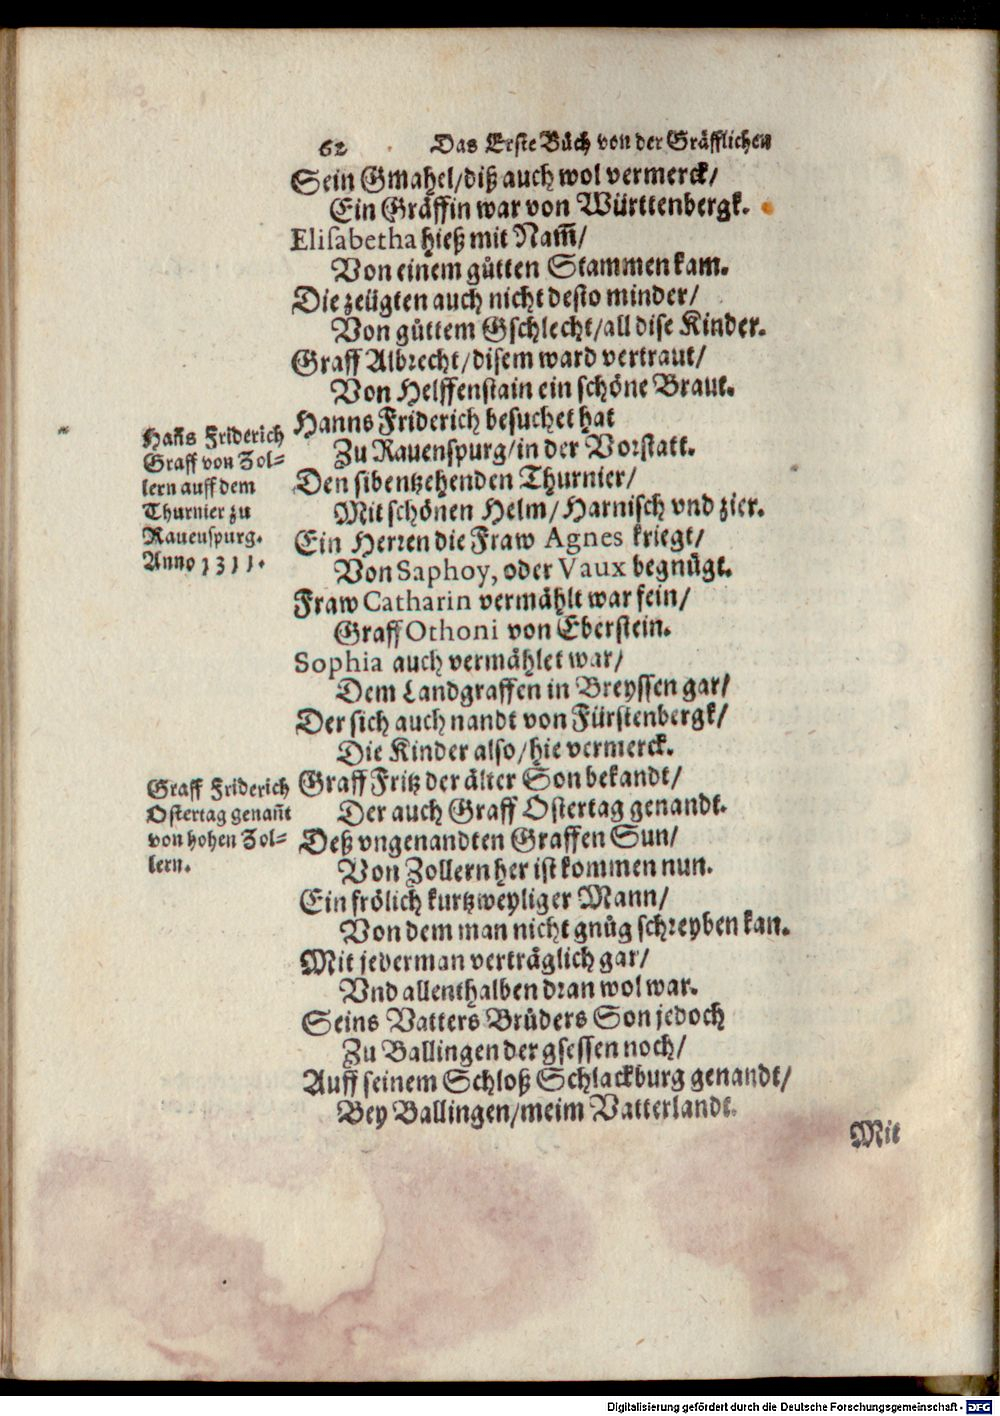 62 Das Erste Bůch von der Gräfflichen
Sein Gmahel/diß auch wol vermerck/
Ein Gräffin war von Württenbergk.
Elisabetha hieß mit Nam̃/
Von einem gůtten Stammen kam.
Die zeügten auch nicht desto minder/
Von gůttem Gschlecht/all dise Kinder.
Graff Albrecht/disem ward vertraut/
Von Helffenstain ein schöne Braut.
Hanns Friderich besuchet hat
Zu Rauenspurg/in der Vorstatt.
Den sibentzehenden Thurnier/
Mit schönen Helm/Harnisch vnd zier.
Ein Herren die Fraw Agnes kriegt/
Von Saphoy, oder Vaux begnügt.
Fraw Catharin vermählt war fein/
Graff Othoni von Eberstein.
Sophia auch vermählet war/
Dem Landgraffen in Breyssen gar/
Der sich auch nandt von Fürstenbergk/
Die Kinder also/hie vermerck.
Graff Fritz der älter Son bekandt/
Der auch Graff Ostertag genandt.
Deß vngenandten Graffen Sun/
Von Zollern her ist kommen nun.
Ein frölich kurtzweyliger Mann/
Von dem man nicht gnůg schreyben kan.
Mit jederman verträglich gar/
Vnd allenthalben dran wol war.
Seins Vatters Brůders Son jedoch
Zu Ballingen der gsessen noch/
Auff seinem Schloß Schlackburg genandt/
Bey Ballingen/meim Vatterlandt.
Mit
Han̄s Friderich
Graff von Zol-
lern auff dem
Thurnier zu
Rauenspurg.
Anno 1311.
Graff Friderich
Ostertag genan̄t
von hohen Zol-
lern.
Digitalisierung gefördert durch die Deutsche Forschungsgemeinschaft - DFG